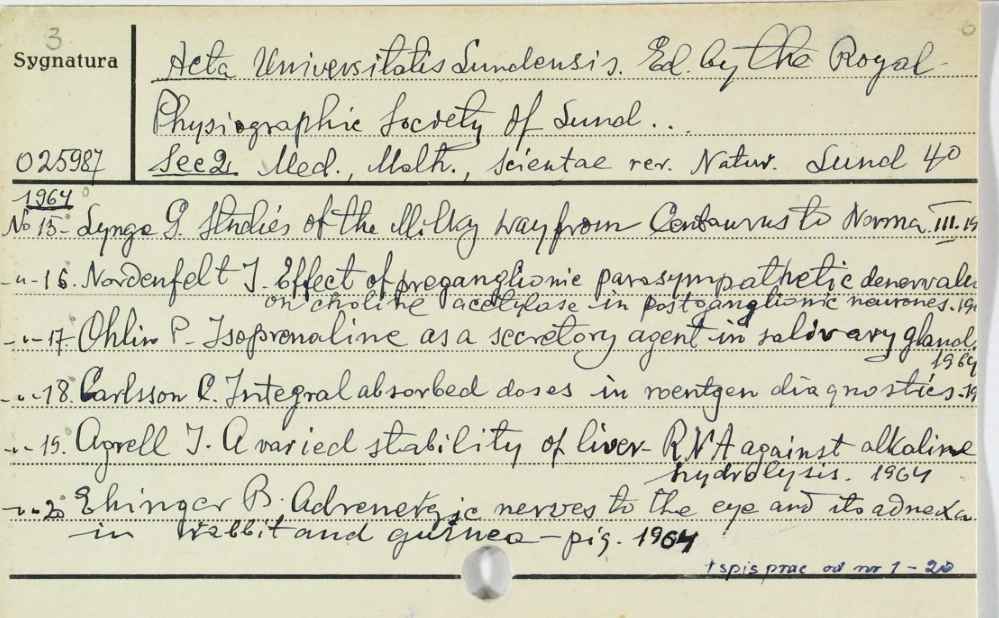 3
Sygnatura
Acta Universitatis Lundensis. Ed. by the Royal
Physiographic Society of Lund...
025987 Sec 2. Med., Math., Scientae rer. Natur. Lund 40
1964
No 15- Lynga G. Studies of the Milky Way from Centaurus to Norma III. 19
-"-16. Nordenfelt I. Effect of preganglionic parasympathetic denervatio
on choline acetylase in postganglionic neurones. 19
-"-17. Ohlin P. Isoprenaline as a secretory agent in salivary gland.
1964
-"-18. Carlsson C. Integral absorbed doses in roentgen diagnostics. 19
-"-19. Agrell I. A varied stability of liver-RNA against alkaline
hydrolysis. 1964
-"-20 Ehinger B. Adrenergic nerves to the eye and its adnexa
in rabbit and guinea-pig. 1964
spis prac od nr 1-20